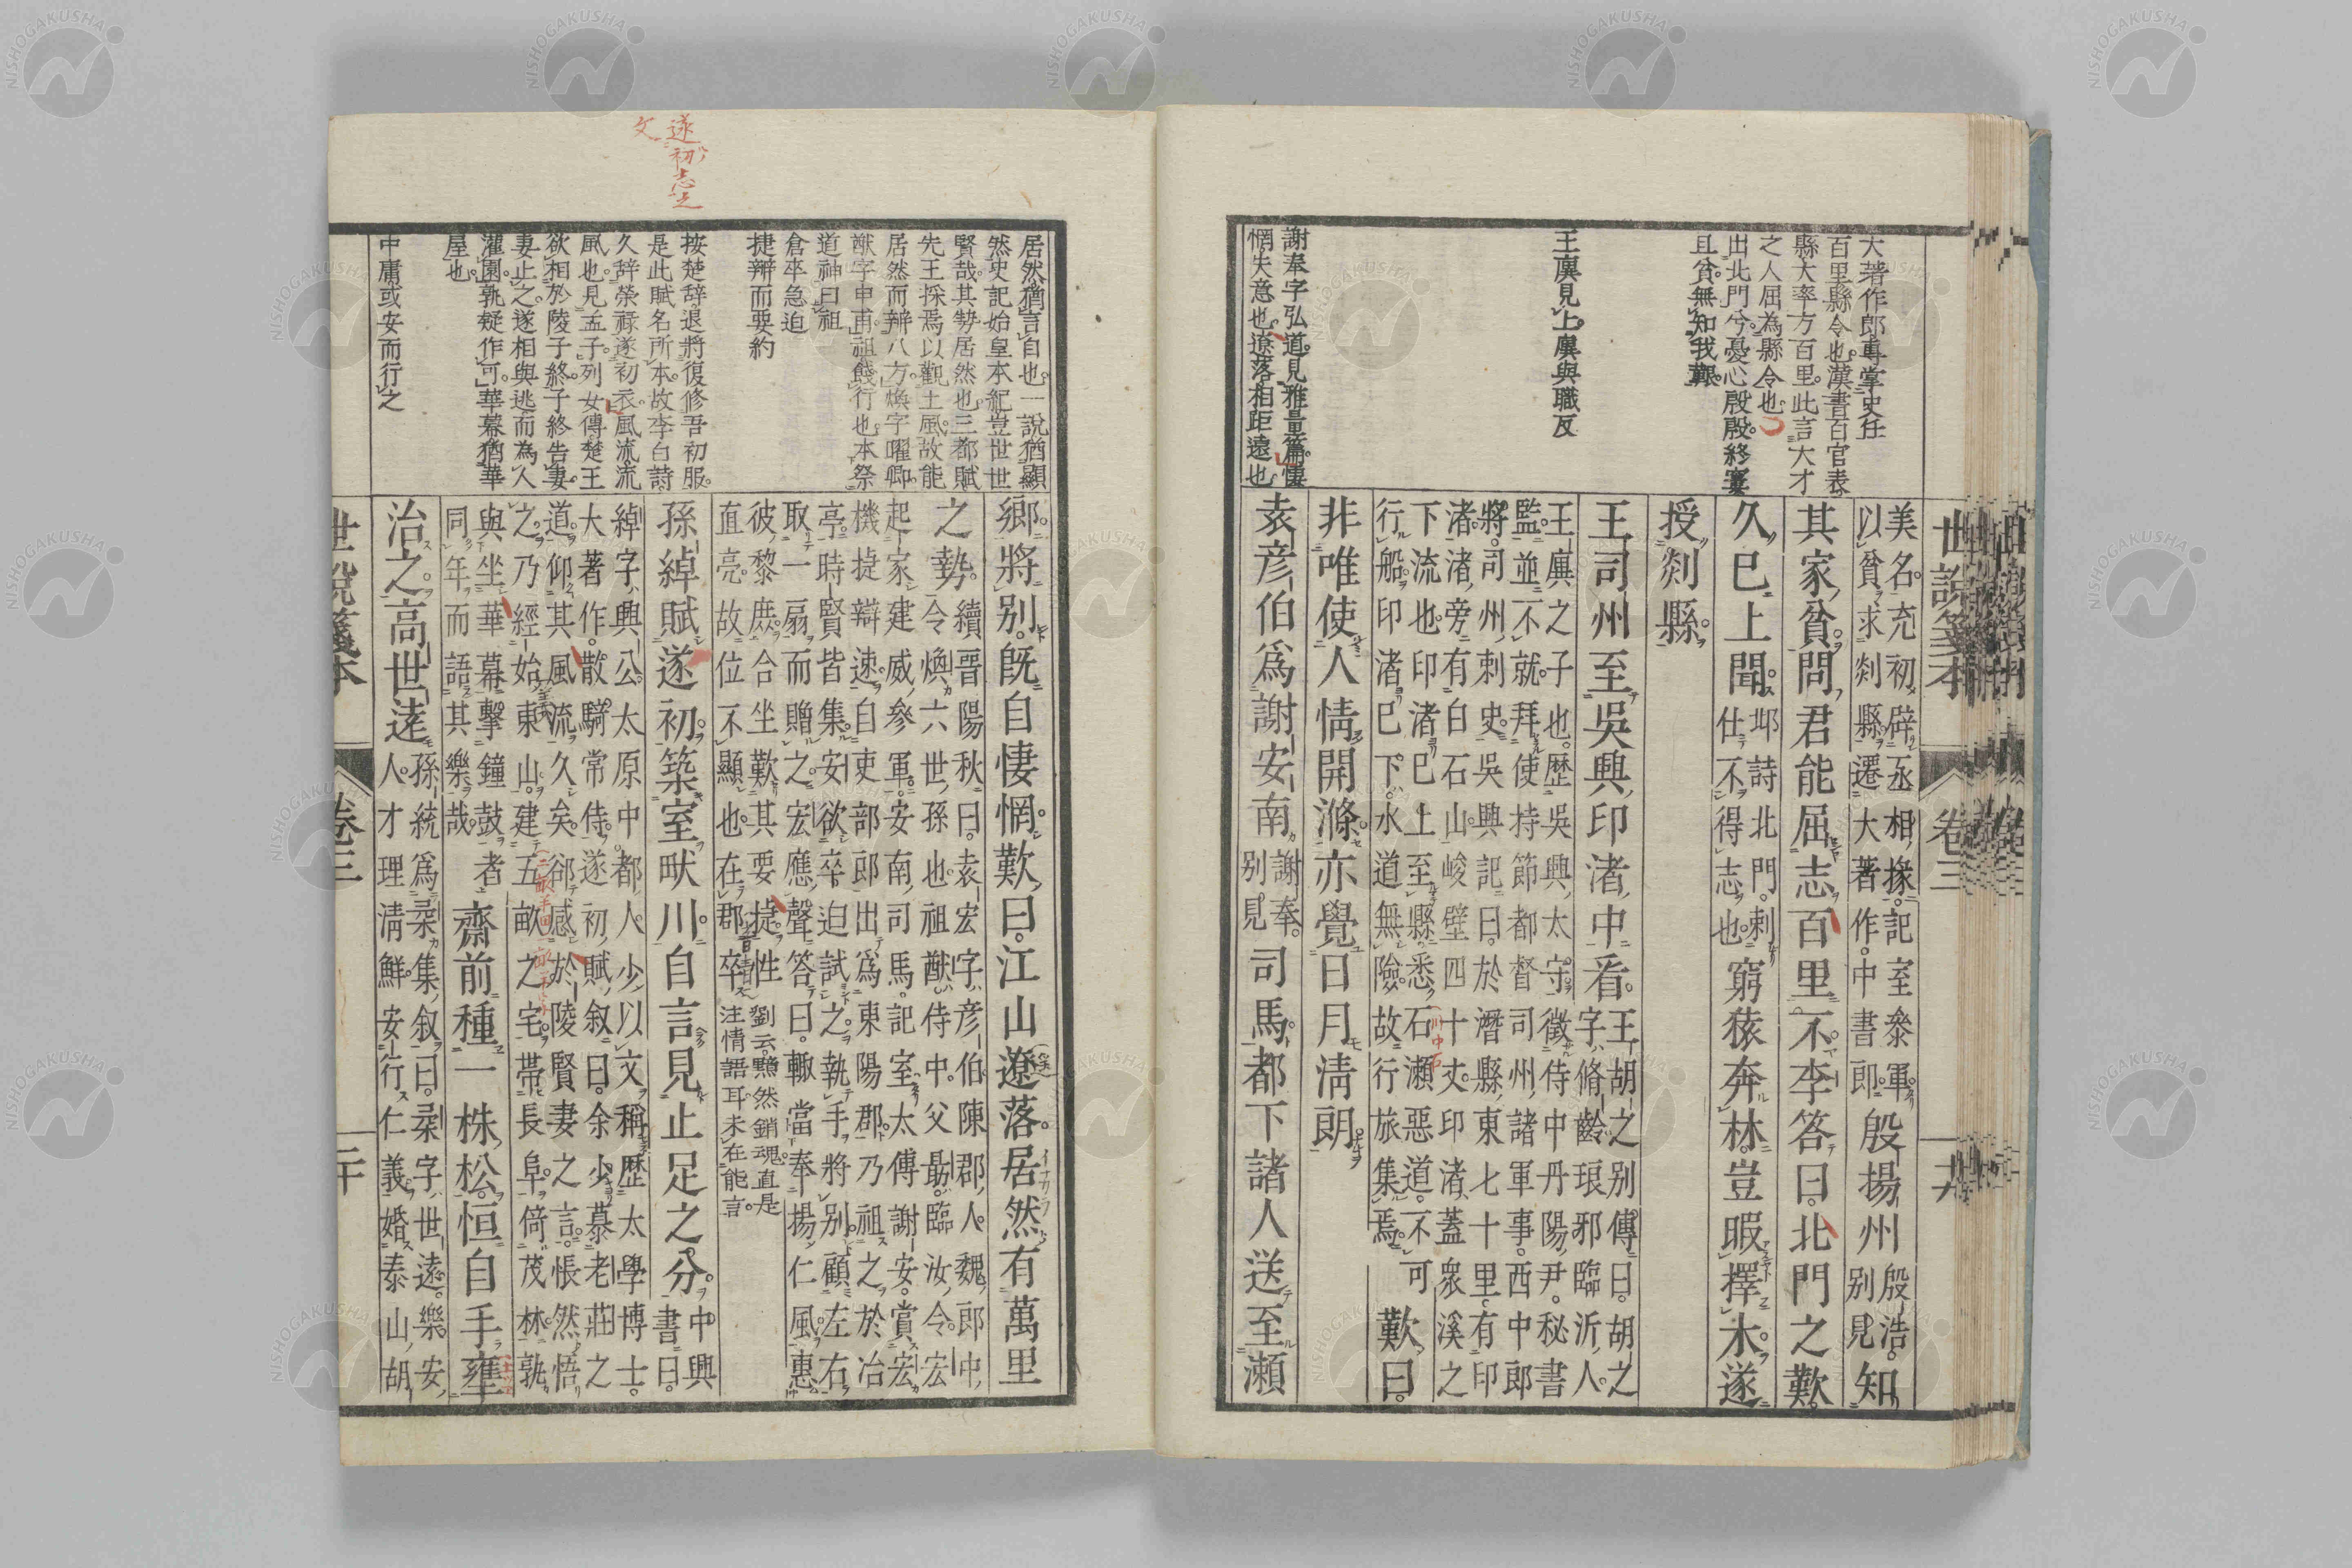 世說箋本
卷三
十九
大著作郎專掌史任
百里縣令也漢書百官表
縣大率方百里此言大才
之人屈為縣令也
出北門兮憂心殷殷終寠
且貧無知我艱
王廙見上廙與職反
謝奉字弘道見雅量篇悽
惘失意也遼落相距遠也
美名充初辟丞相掾記室參軍
以貧求剡縣遷大著作中書郎
殷揚州
殷浩
別見
知
其家貧問君能屈志百里不李答曰北門之歎
久已上聞
邶詩北門刺
仕不得志也
窮猿奔林豈暇擇木遂
授剡縣
王司州至吳興印渚中看
王胡之別傳曰胡之
字脩齡琅邪臨沂人
王廙之子也歷吳興太守徵侍中丹陽尹秘書
監並不就拜使持節都督司州諸軍事西中郎
將司州刺史吳興記曰於潛縣東七十里有印
渚渚旁有白石山峻壁四十丈印渚蓋衆溪之
下流也印渚已上至縣悉石瀨惡道不可
行船印渚已下水道無險故行旅集焉
歎曰
非唯使人情開滌亦覺日月淸朗
袁彥伯爲謝安南
謝奉
別見
司馬都下諸人送至瀨
遂初志之
文
居然猶言自也一說猶顯
然史記始皇本紀豈世世
賢哉其勢居然也三都賦
先王採焉以觀土風故能
居然而辨八方煥字曜卿
猷字申甫祖餞行也本祭
道神曰祖
倉卒急迫
捷辯而要約
按楚辭退將復修吾初服
是此賦名所本故李白詩
久辭榮祿遂初衣風流流
風也見孟子列女傳楚王
欲相於陵子終子終告妻
妻止之遂相與逃而為人
灌園孰疑作可華幕猶華
屋也
中庸或安而行之
鄉將別旣自悽惘歎曰江山遼落居然有萬里
之勢
續晉陽秋曰袁宏字彥伯陳郡人魏郎中
令煥六世孫也祖猷侍中父勗臨汝令宏
起家建威參軍安南司馬記室太傅謝安賞宏
機捷辯速自吏部郎出爲東陽郡乃祖之於冶
亭時賢皆集安欲卒迫試之執手將別顧左右
取一扇而贈之宏應聲答曰輒當奉揚仁風惠
彼黎庶合坐歎其要捷性
直亮故位不顯也在郡卒
劉云黯然銷魂直是
注情語耳未在能言
孫綽賦遂初築室畎川自言見止足之分
中興
書曰
綽字興公太原中都人少以文稱歷太學博士
大著作散騎常侍遂初賦叙曰余少慕老莊之
道仰其風流久矣卻感於陵賢妻之言悵然悟
之乃經始東山建五畝之宅帶長阜倚茂林孰
與坐華幕擊鐘鼓者
同年而語其樂哉
齋前種一株松恒自手壅
治之高世遠
孫統爲柔集叙曰柔字世遠樂安
人才理淸鮮安行仁義婚泰山胡
世說箋本
卷三
二十